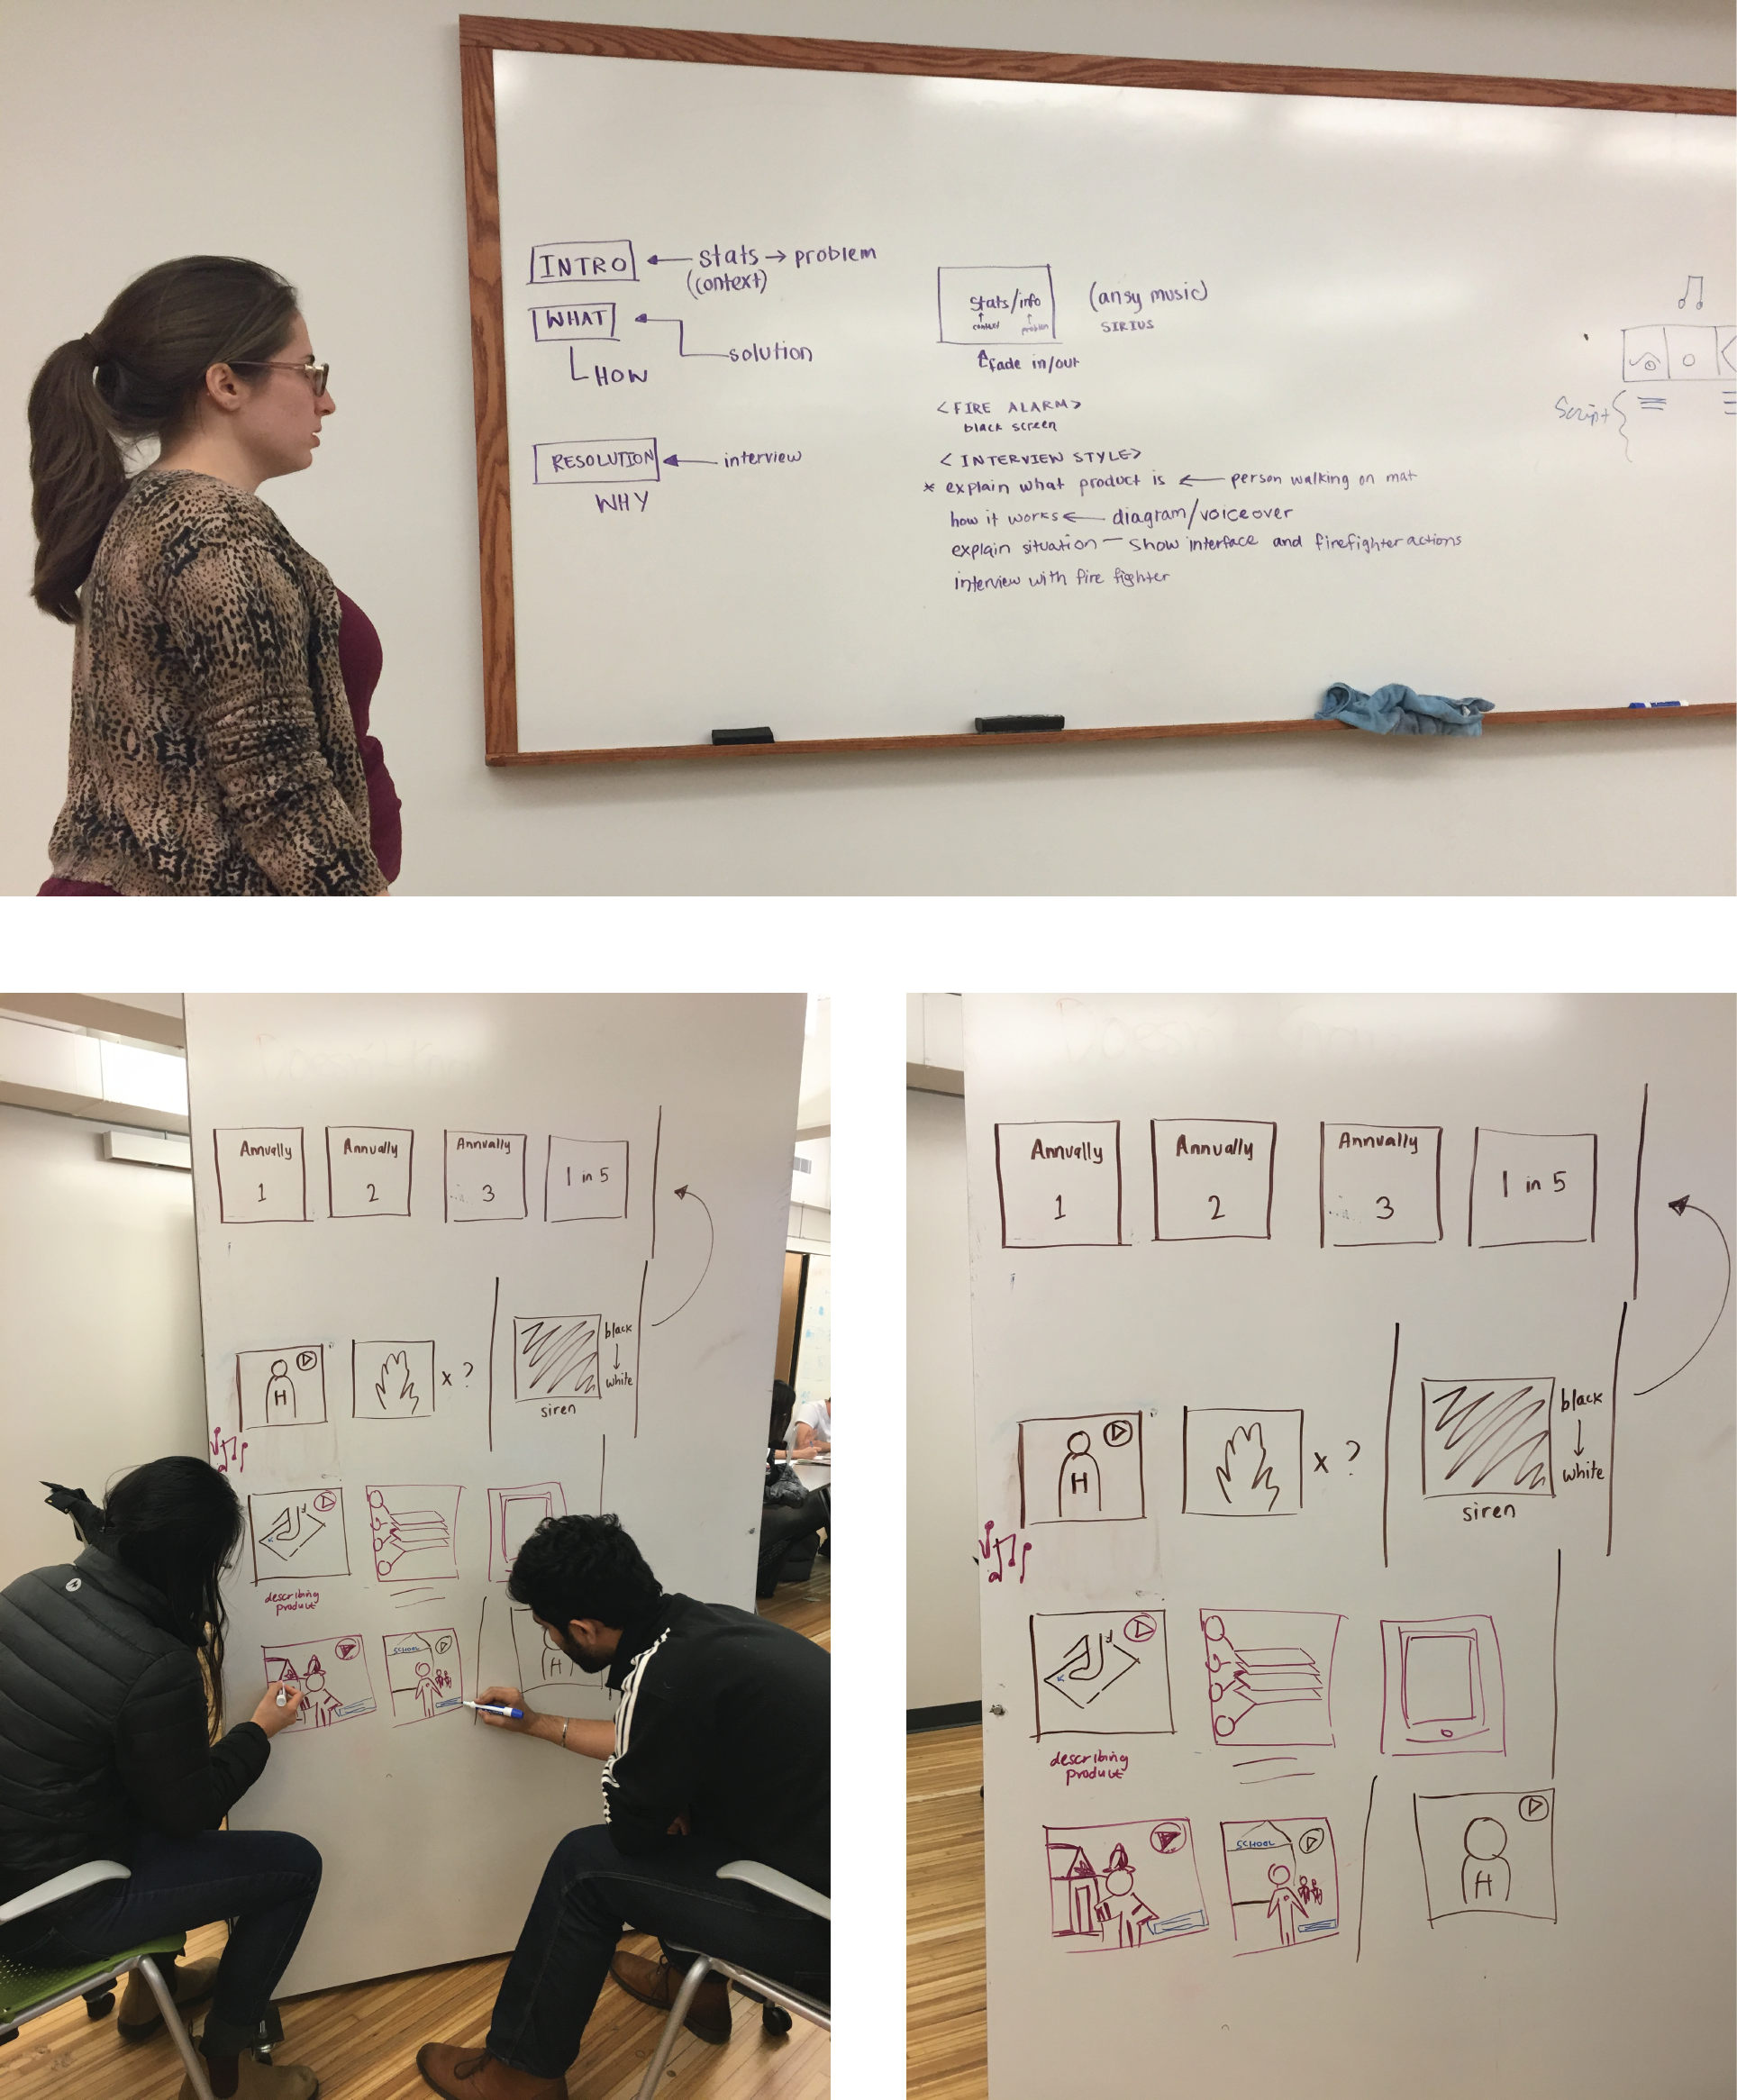 INTRO ← stats → problem
(context)
WHAT
solution
HOW
RESOLUTION ← interview
WHY
Stats/info
context problem
(ansy music)
SIRIUS
fade in/out
<FIRE ALARM>
black screen
<INTERVIEW STYLE>
* explain what product is ← person walking on mat
how it works ← diagram/voiceover
explain situation — show interface and firefighter actions
interview with fire fighter
Script
Annually Annually Annually 1 in 5
1 2 3
H
x ?
black
↓
white
siren
describing
product
SCHOOL
H
Doesn't
Annually Annually Annually 1 in 5
1 2 3
H
x ?
black
↓
white
siren
describing
product
SCHOOL
H